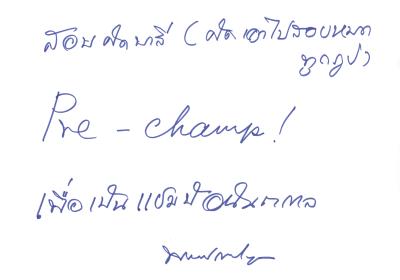 สอบคัดบาลี (คัดเอาไปสอบหมด
ทุกรูป)
Pre - champ!
เพื่อเป็นแชมป์อนันตกาล